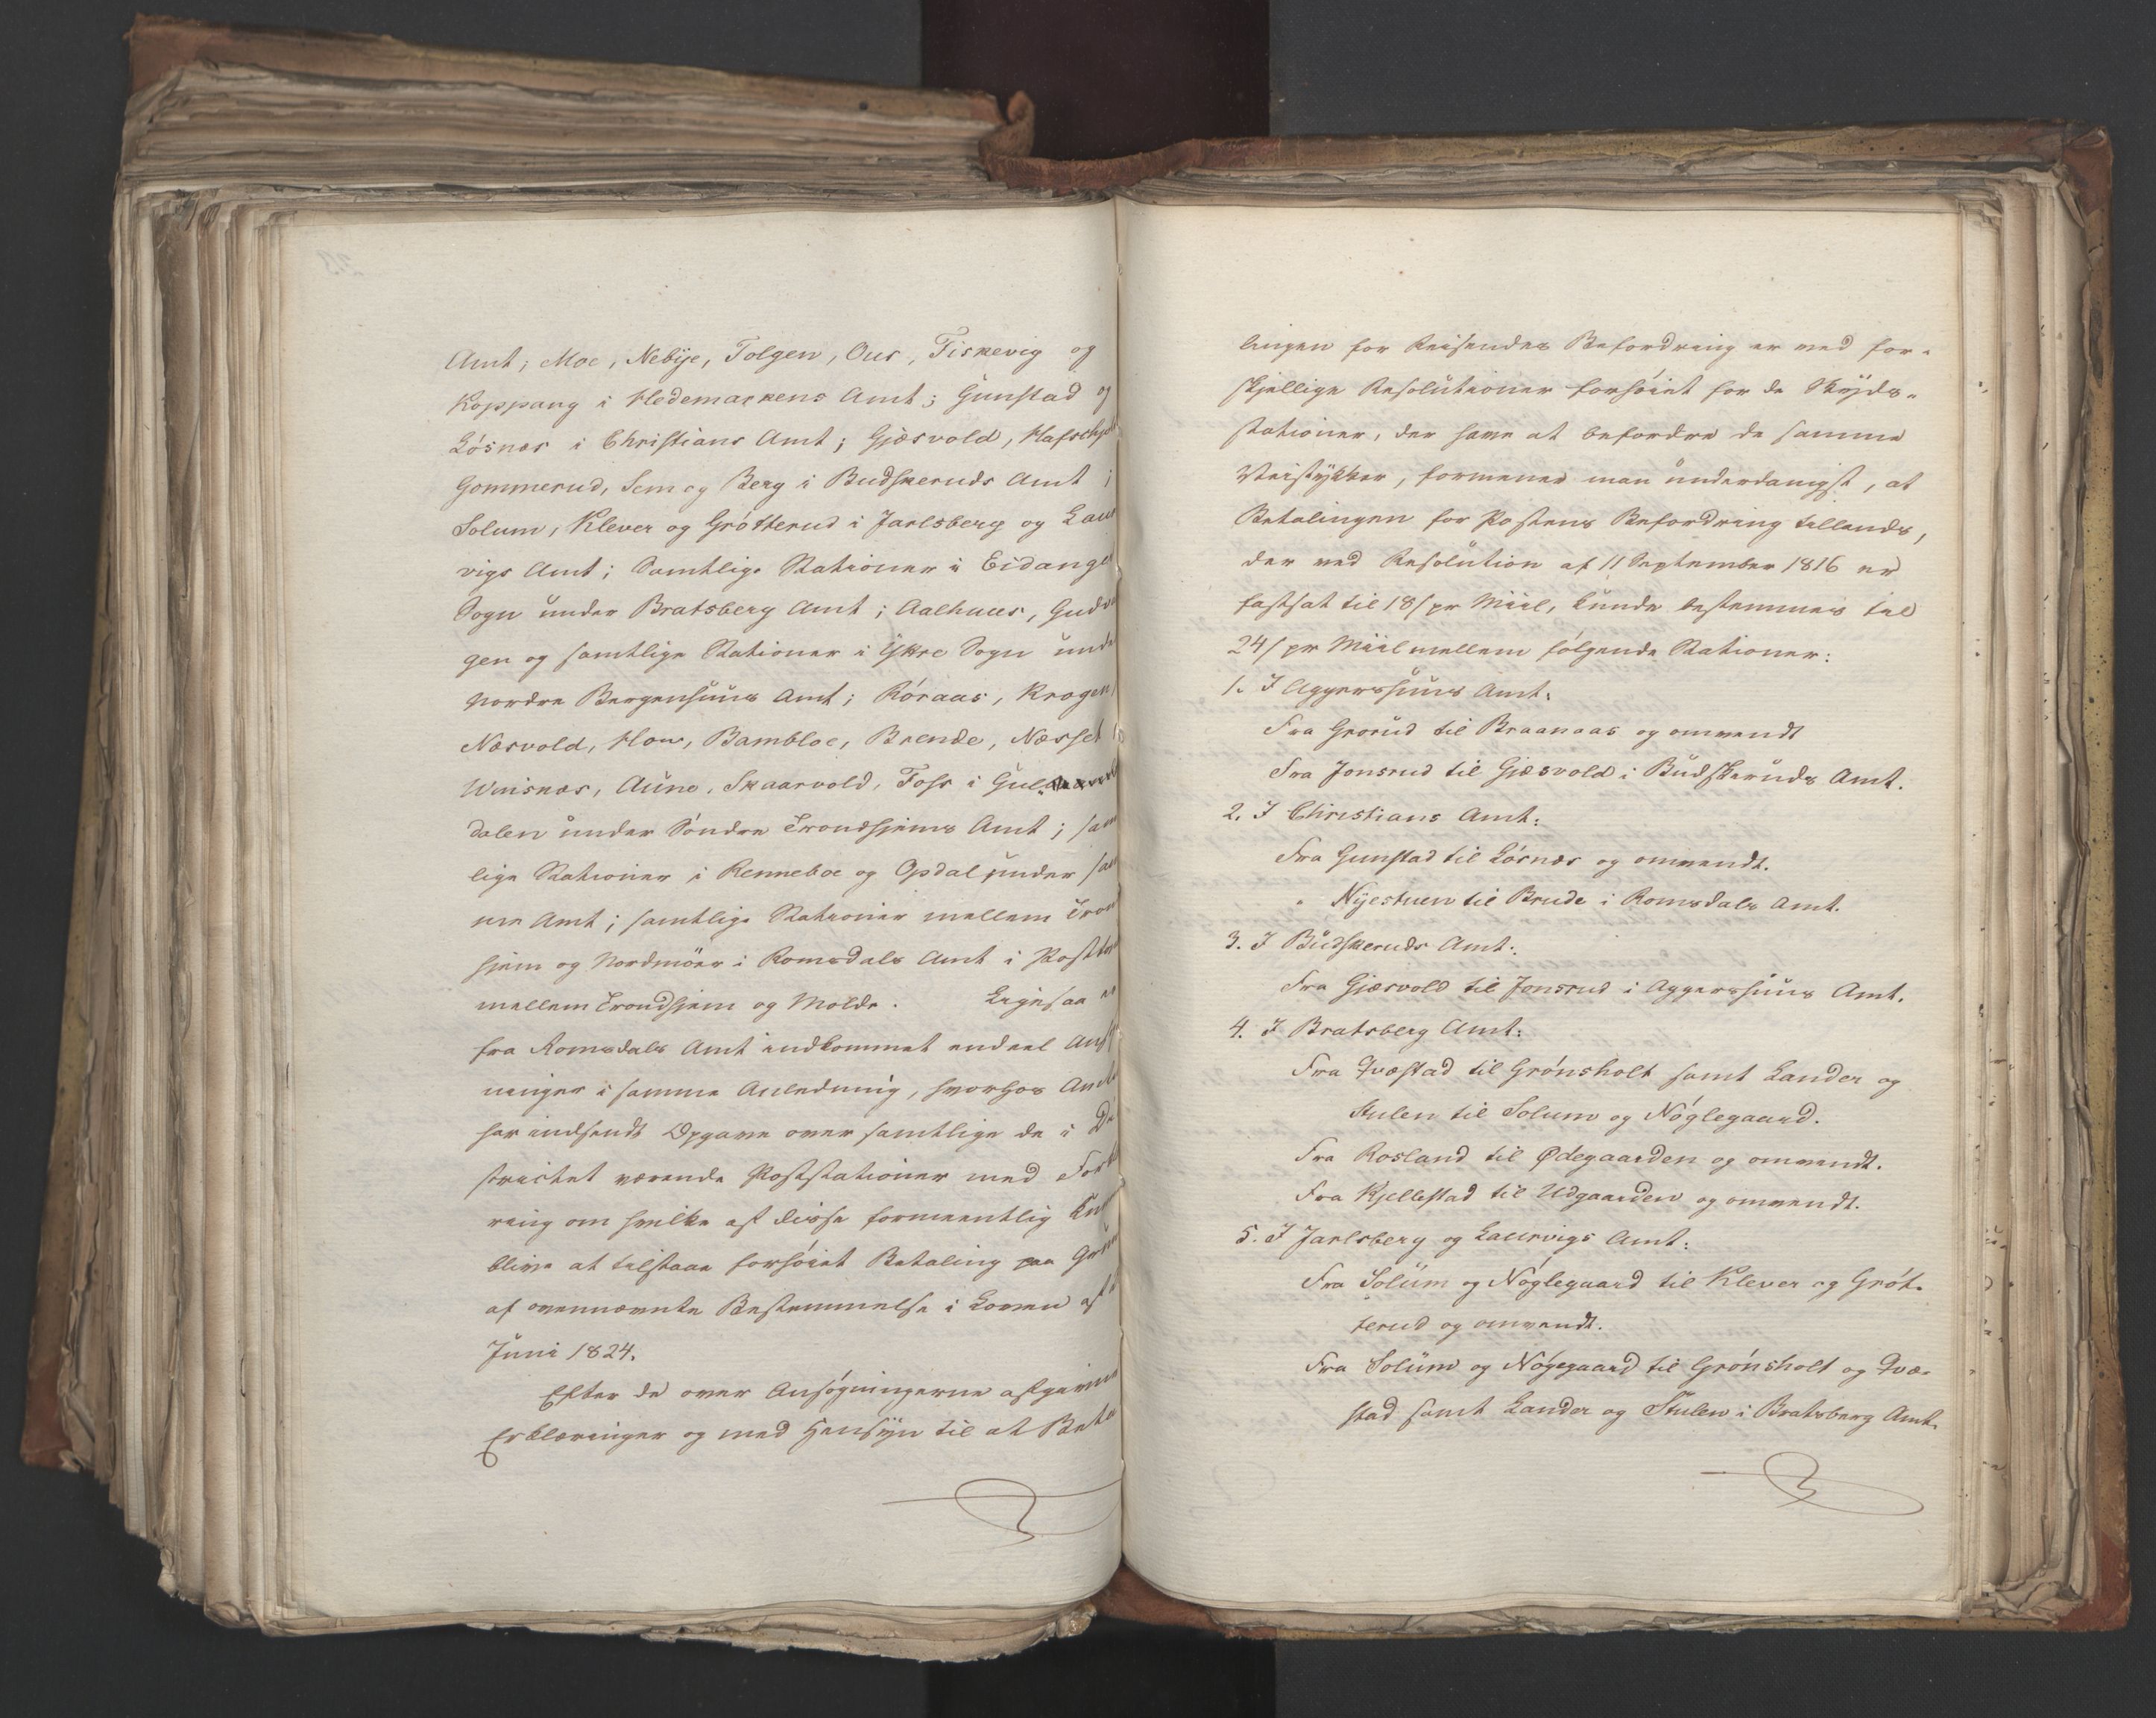 Amt; Moe, Nebÿe, Tolgen, Ous, Fiskevig og
Koppang i Hedemarkens Amt; Gunstad og
Lósnæs i Christians Amt; Gjæsvold,
Gommerud, Sem og Berg i Budskeruds Amt;
Solum, Klever og Grótterud i Jarlsberg og Laur
vigs Amt; Samtlige Stationer i Eidange
Sogn under Bratsberg Amt; Aalhuus, Gudva
gen og samtlige Stationer i Ykre Sogn unde
Nordre Bergenhuus Amt; Róraas, Krogen,
Næsvold, Hov, Bambloe, Brende, Næsset
Winsnæs, Aune, Skaarvold, Foss i Gul
dalen under Søndre Trondhjems Amt; sam
lige Stationer i Renneboe og Opdal under sam
me Amt; samtlige Stationer mellem Tron
hjem og Nordmöer i Romsdals Amt i Post
mellem Trondhjem og Molde. Ligesaa er
fra Romsdals Amt indkommet endeel Ansø
ninger i samme Anledning, hvorhos Amt
har indsendt Opgave over samtlige de i Di
strictet værende Poststationer med Erklæ
ring om hvilke af disse formeentlig
blive at tilstaae forhøiet Betaling paa Grund
af ovennævnte Bestemmelse i Loven af
Juni 1824.
Efter de over Ansøgningerne afgivne
Erklæringer og med Hensÿn til at Beta
lingen for Reisendes Befordring er ved for-
skjellige Resolutioner forhøiet for de Skÿds-
stationer, der have at befordre de samme
Veistÿkker, formener man underdanigst, at
Betalingen for Postens Befordring tillands,
der ved Resolution af 11 September 1816 er
fastsat til 18/ pr Miil, kunde bestemmes til
24/ pr Miil mellem følgende Stationer:
1. I Aggershuus Amt:
Fra Grorud til Braanaas og omvendt
Fra Jonsrud til Gjæsvold i Budskeruds Amt.
2. I Christians Amt:
Fra Gunstad til Lósnæs og omvendt.
" Nÿestuen til Brude i Romsdals Amt.
3. I Budskeruds Amt:
Fra Gjæsvold til Jonsrud i Aggershuus Amt.
4. I Bratsberg Amt:
Fra Qvæstad til Grónsholt samt Lander og
Stulen til Solum og Nóglegaard.
Fra Rosland til Ødegaarden og omvendt.
Fra Kjellestad til Udgaarden og omvendt.
5. I Jarlsberg og Laurvigs Amt:
Fra Solum og Nóglegaard til Klever og Grót-
terud og omvendt.
Fra Solum og Nógegaard til Grónsholt og Qvæ-
stad samt Lander og Stulen i Bratsberg Amt.